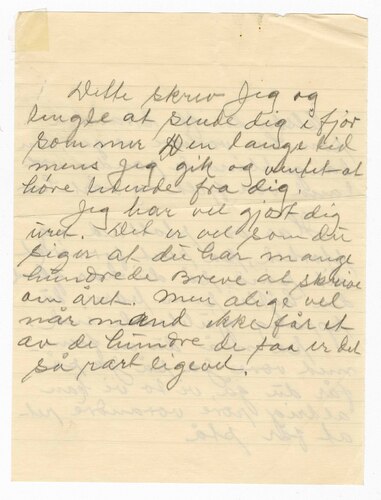 Dette skrev Jeg og
lengte at sende dig i fjor
som mor Den lange tid
mens Jeg gik og ventet at
høre istende fra dig.
Jeg har vel gjort dig
uret. Det er vel som du
siger at du har mange
hundrede Breve at skrive
om året. Men alige vel
når mand ikke får et
av de hundre de saa er det
så rart ligevel.